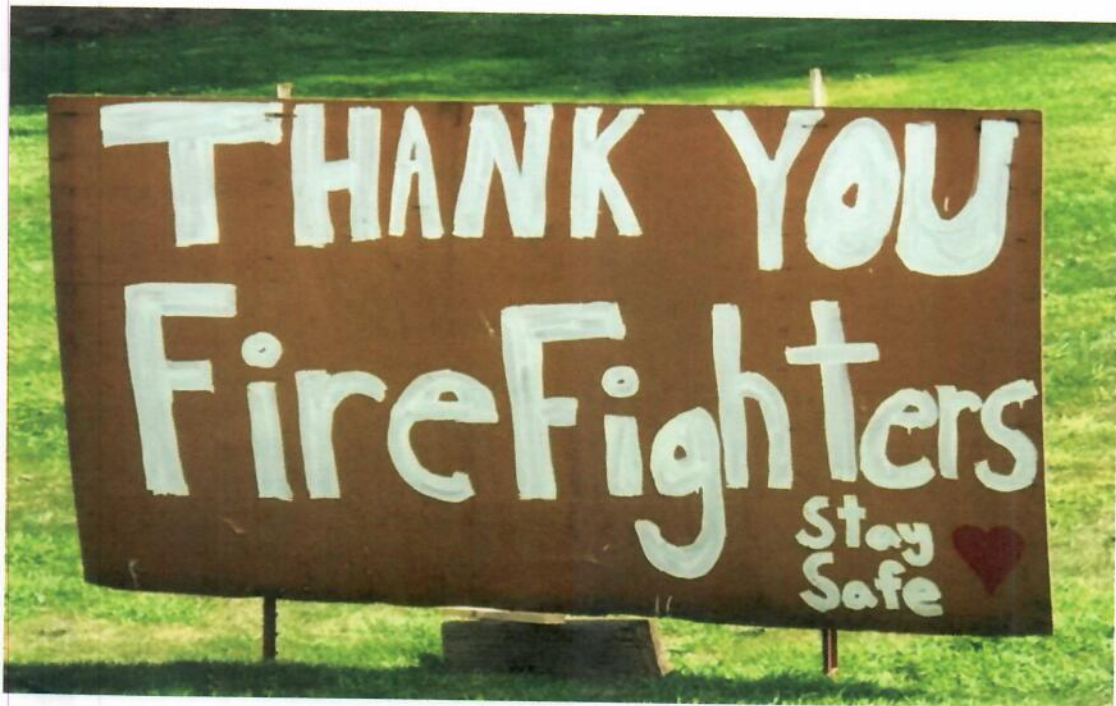 THANK YOU
FireFighters
Stay
Safe